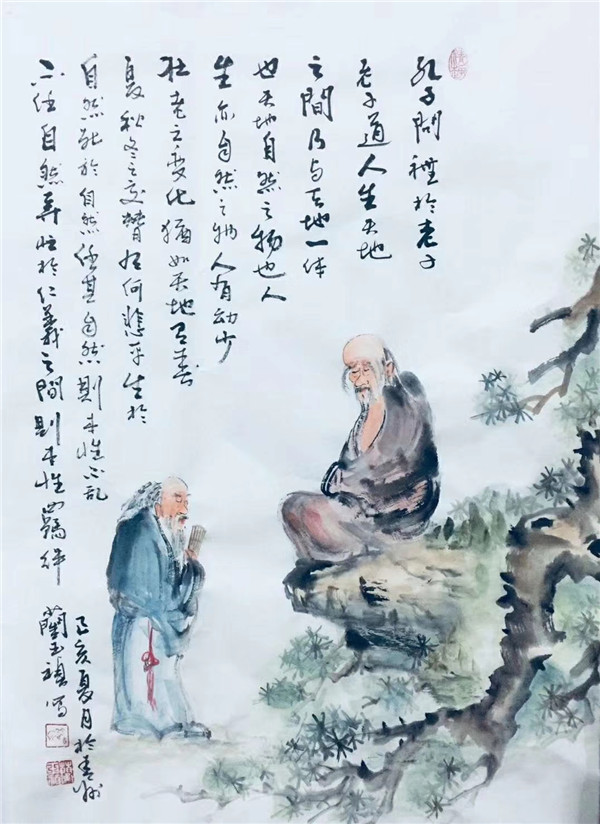 孔子問禮於老子
老子道人生天地
之間乃与天地一体
也天地自然之物也人
生亦自然之物人有幼少
壮老之变化猶如天地有春
夏秋冬之交替有何悲乎生於
自然死於自然任其自然則本性不乱
不任自然奔忙於仁義之間則本性羈绊
己亥夏月於青州
蘭玉禎写